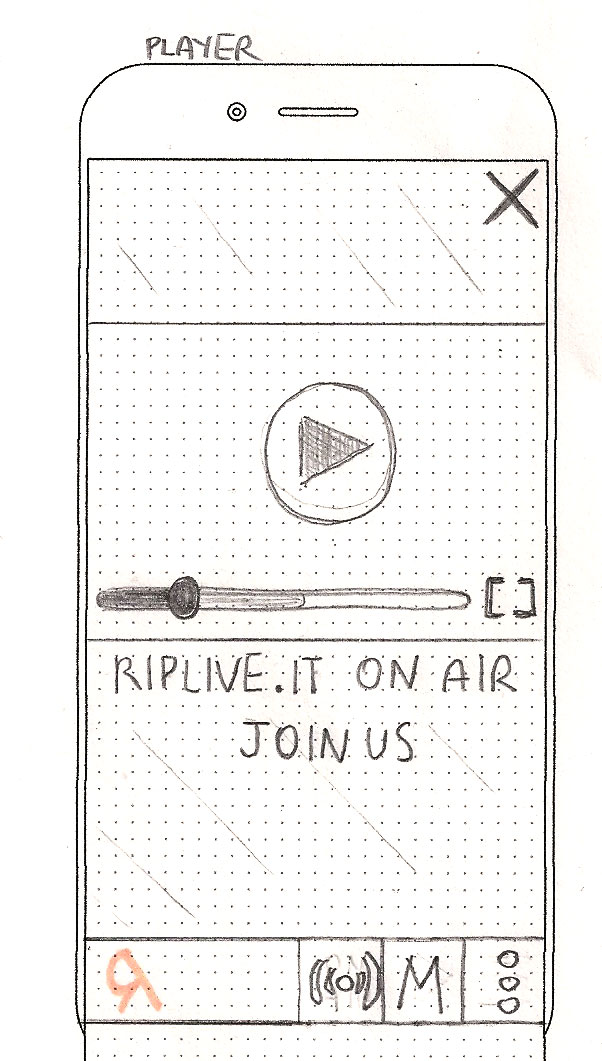 PLAYER
RIPLIVE.IT ON AIR
JOIN US
Я M